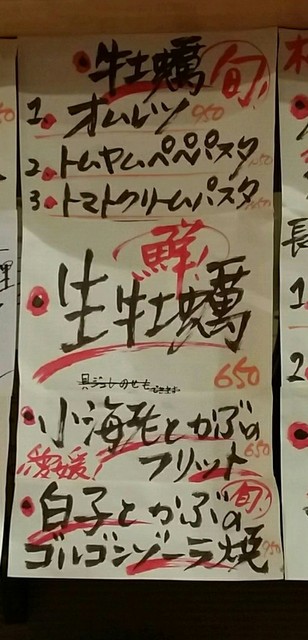 牡蠣 旬!
1. オムレツ 950
2. トムヤムペペパスタ
3. トマトクリームパスタ
鮮!
生牡蠣
650
小海老とかぶの
愛媛! フリット 650
白子とかぶの 旬!
ゴルゴンゾーラ焼 950
長
1
2